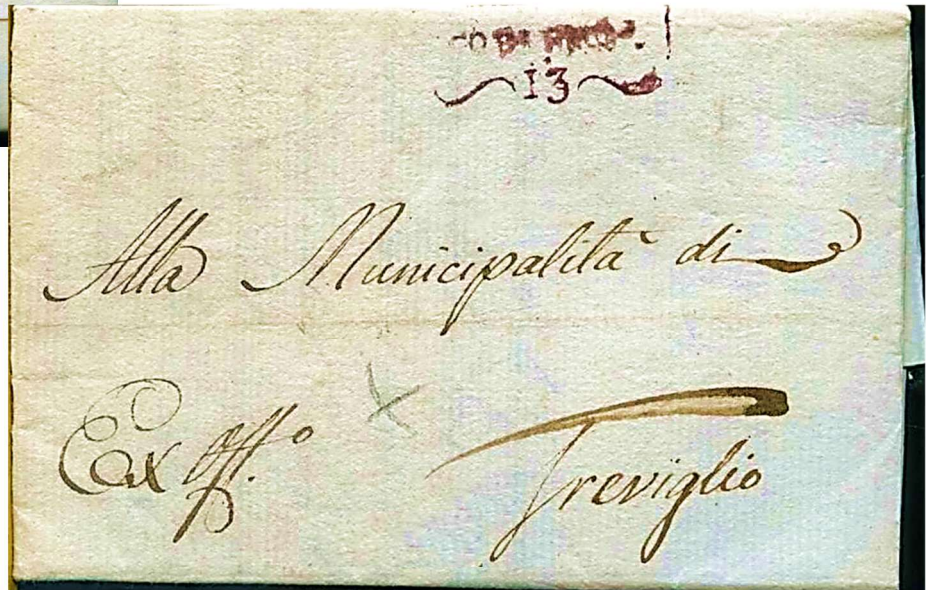 13
Alla Municipalità di
Ex Off.º
Treviglio